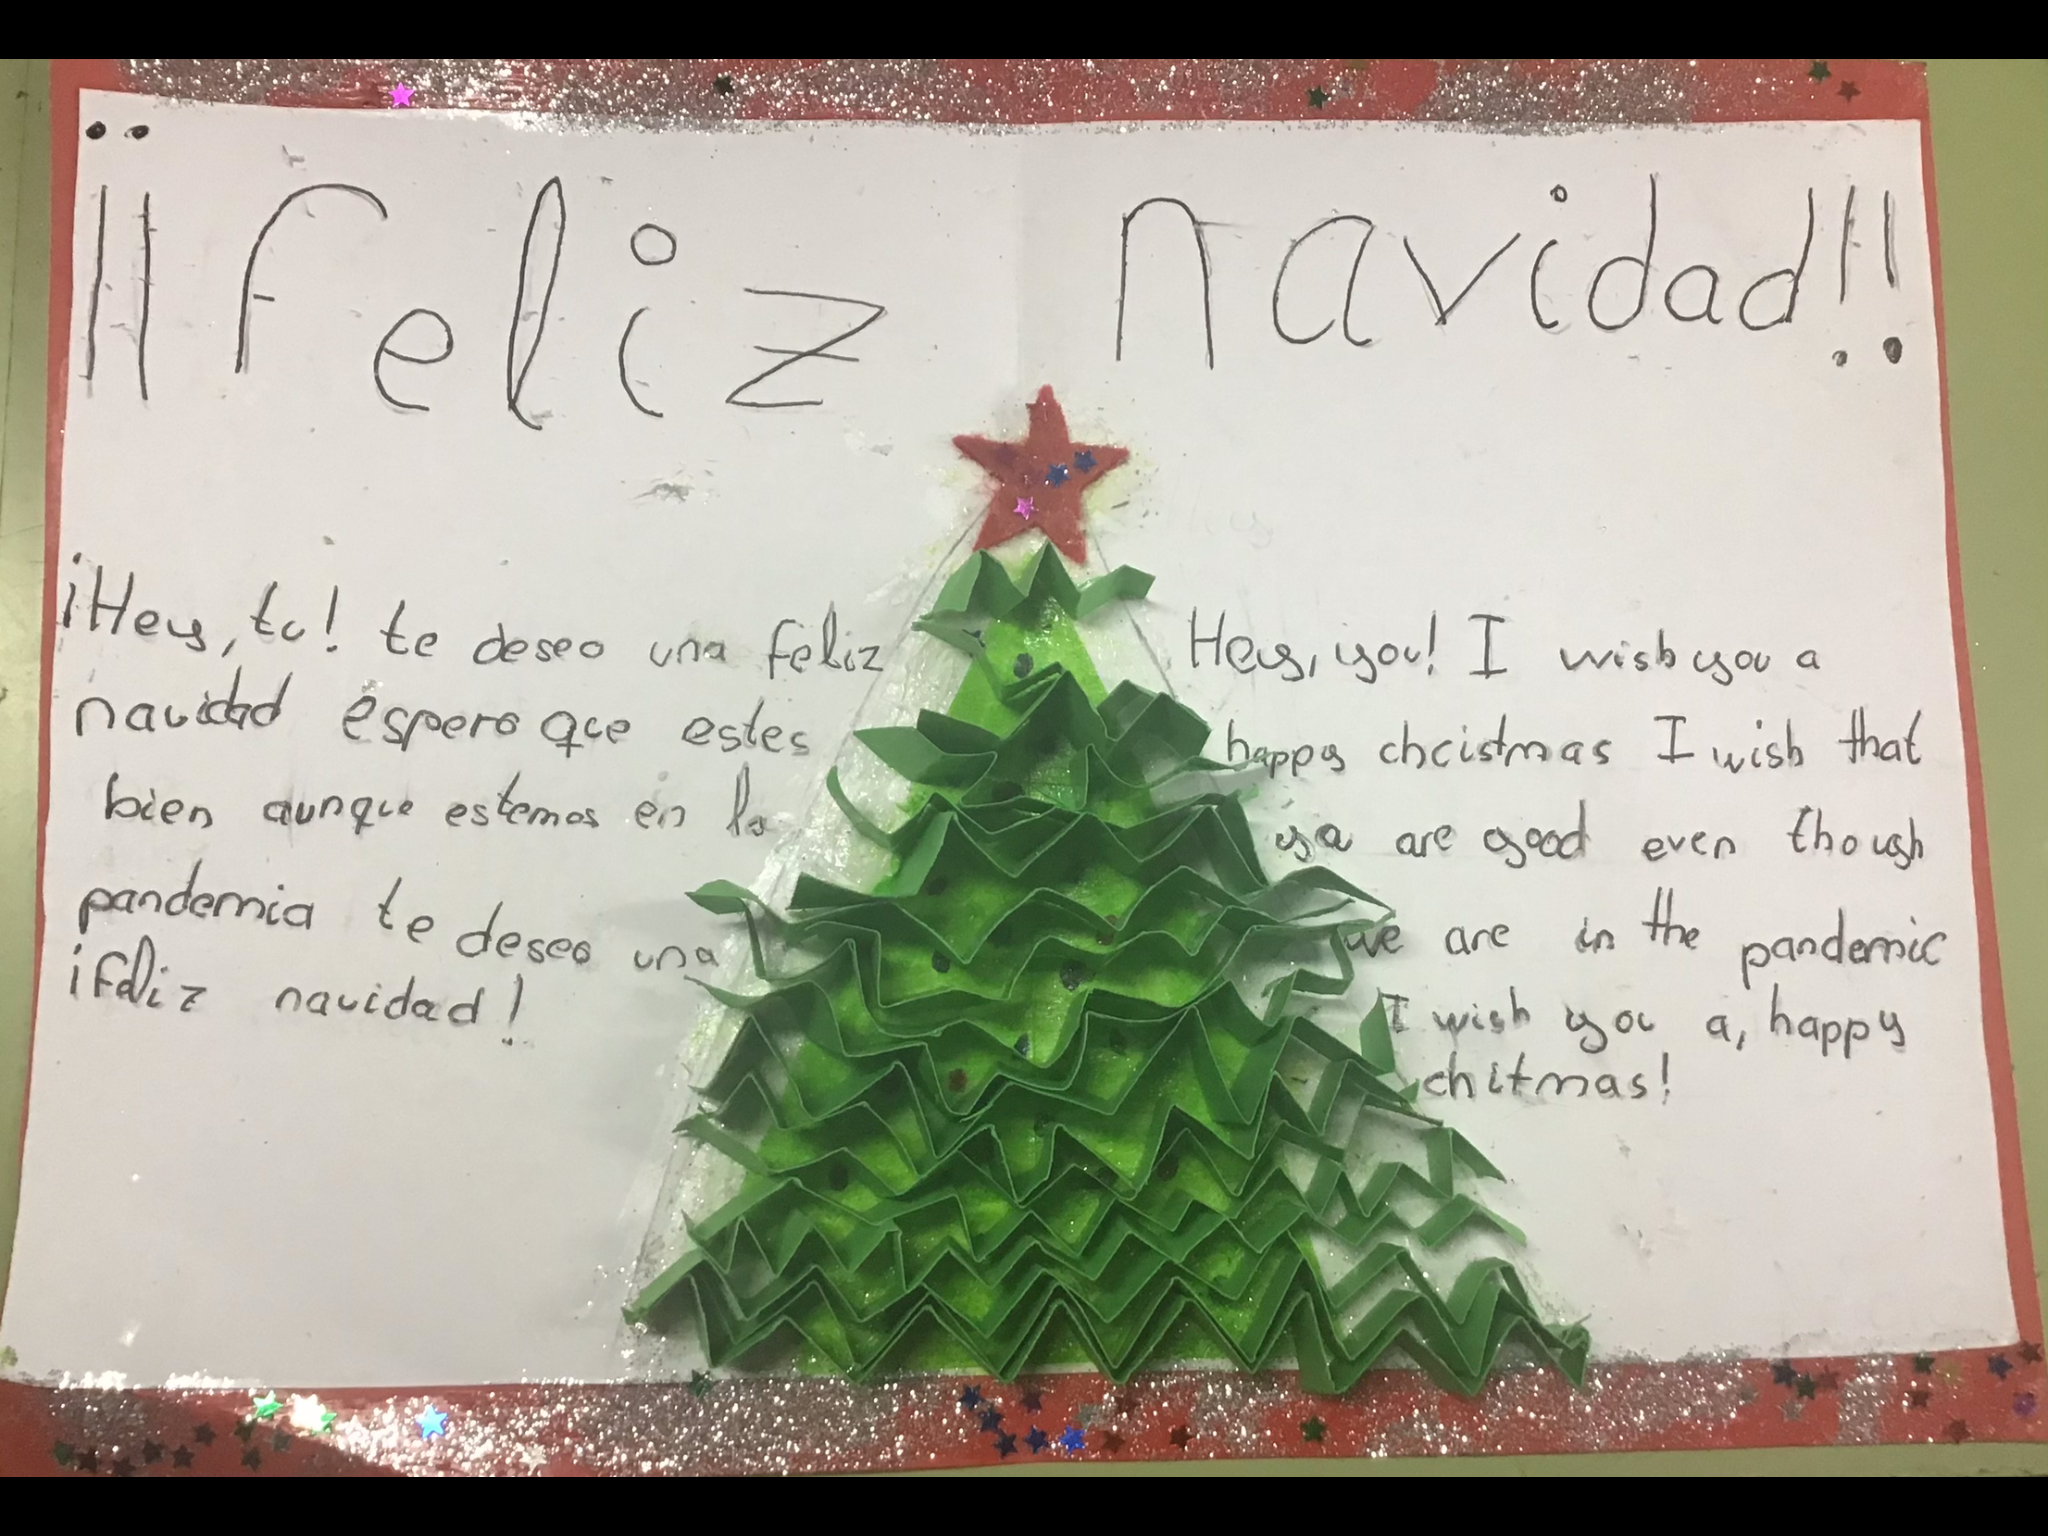 ¡¡feliz navidad!!
¡Hey, tu! te deseo una feliz
navidad espero que estes
bien aunque estemos en la
pandemia te deseo una
¡feliz navidad!
Hey, you! I wish you a
happy chcistmas I wish that
you are good even though
we are in the pandemic
I wish you a, happy
chitmas!